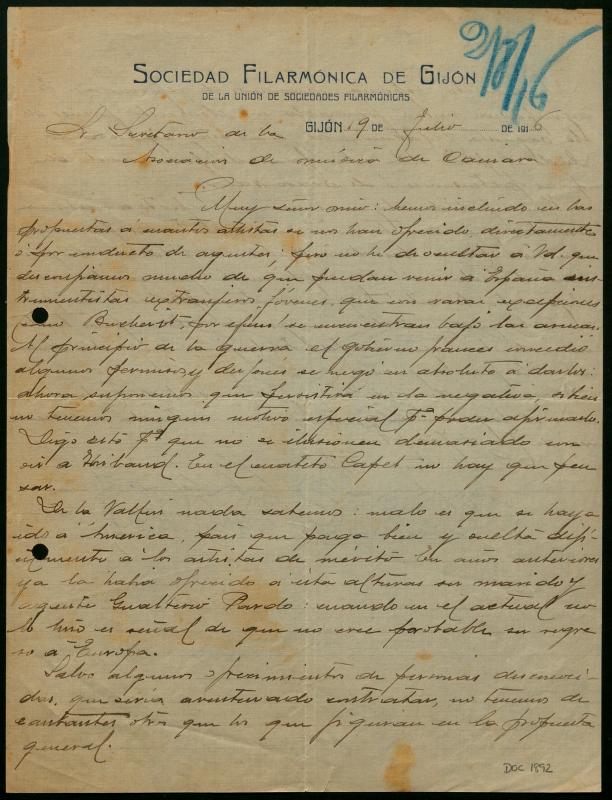 2/8/16
SOCIEDAD FILARMÓNICA DE GIJÓN
DE LA UNIÓN DE SOCIEDADES FILARMÓNICAS
GIJÓN 19 DE Julio DE 1916
Sr. Secretario de la
Asociación de música de Camara
Muy señor mio: hemos incluido en las
propuestas á cuantos artistas se nos han ofrecido, directamente
ó por conducto de agentes, pero no he de ocultar á Vd. que
desconfiamos mucho de que puedan venir á España ins-
trumentistas extranjeros jóvenes, que con raras excepciones
como Bucherit, por ejem. se encuentran bajo las armas.
Al principio de la guerra el gobierno frances concedió
algunos permisos y despues se nego en absoluto á darlos:
ahora suponemos que persistirá en la negativa, si bien
no tenemos ningun motivo especial pª poder afirmarlo.
Digo esto pª que no se ilusionen demasiado con
oir á Thibaud. En el cuarteto Capet no hay que pen
sar.
De la Valpur nada sabemos: malo es que se haya
ido á America, pais que paga bien y suelta difi-
cilmente á los artistas de mérito. En años anteriores
ya la habia ofrecido á estas alturas su marido y
agente Gualterio Pardo: cuando en el actual no
lo hizo es señal de que no cree probable su regre
so á Europa.
Salvo algunos ofrecimientos de personas desconoci-
das, que seria aventurado contratar, no tenemos de
cantantes otros que los que figuran en la propuesta
general.
DOC 1892